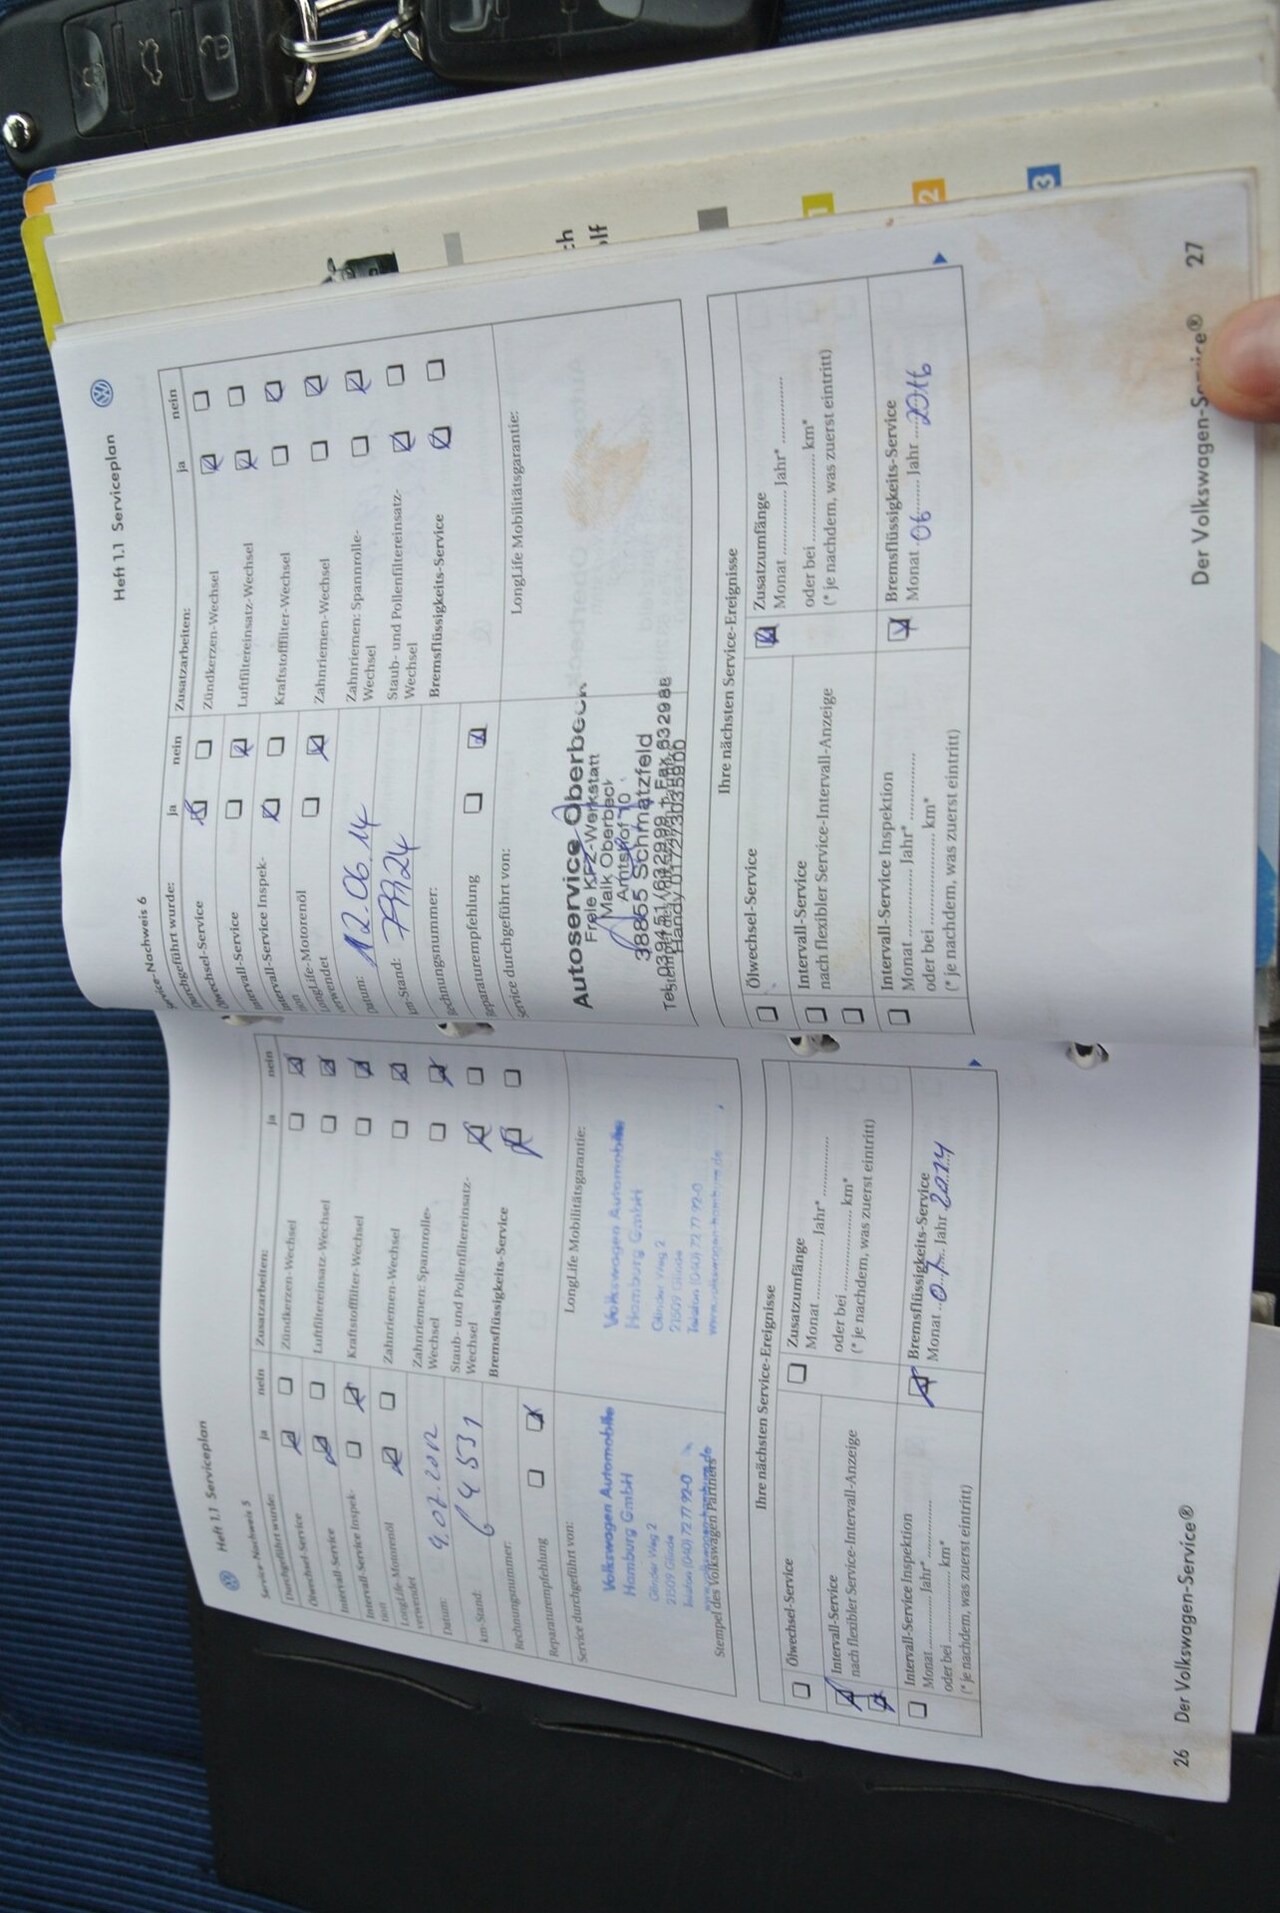 Heft 1.1 Serviceplan
Service-Nachweis 5
Durchgeführt wurde:
ja
nein
Ölwechsel-Service
Intervall-Service
Intervall-Service Inspek-
tion
LongLife-Motorenöl
verwendet
Datum:
km-Stand:
64 531
Rechnungsnummer:
Reparaturempfehlung
Service durchgeführt von:
Volkswagen Automobile
Hamburg GmbH
Glinder Weg 2
21509 Glinde
Telefon (040) 72 77 92-0
Stempel des Volkswagen Partners
Zusatzarbeiten:
ja
nein
Zündkerzen-Wechsel
Luftfiltereinsatz-Wechsel
Kraftstofffilter-Wechsel
Zahnriemen-Wechsel
Zahnriemen: Spannrolle-
Wechsel
Staub- und Pollenfiltereinsatz-
Wechsel
Bremsflüssigkeits-Service
LongLife Mobilitätsgarantie:
Volkswagen Automobile
Hamburg GmbH
Glinder Weg 2
21509 Glinde
Telefon (040) 72 77 92-0
Ihre nächsten Service-Ereignisse
Ölwechsel-Service
Intervall-Service
nach flexibler Service-Intervall-Anzeige
Intervall-Service Inspektion
Monat ............ Jahr* ............
oder bei ............ km*
(* je nachdem, was zuerst eintritt)
Zusatzumfänge
Monat ............ Jahr* ............
oder bei ............ km*
(* je nachdem, was zuerst eintritt)
Bremsflüssigkeits-Service
Monat 07 Jahr 2014
26 Der Volkswagen-Service®
Heft 1.1 Serviceplan
Service-Nachweis 6
Durchgeführt wurde:
ja
nein
Ölwechsel-Service
Intervall-Service
Intervall-Service Inspek-
tion
LongLife-Motorenöl
verwendet
Datum: 12.06.14
km-Stand:
Rechnungsnummer:
Reparaturempfehlung
Service durchgeführt von:
Autoservice Oberbeck
Freie KFZ-Werkstatt
Maik Oberbeck
Amtshof 10
38855 Schmatzfeld
Tel. 039451/632999 + Fax 632988
Handy 0172/3035900
Zusatzarbeiten:
ja
nein
Zündkerzen-Wechsel
Luftfiltereinsatz-Wechsel
Kraftstofffilter-Wechsel
Zahnriemen-Wechsel
Zahnriemen: Spannrolle-
Wechsel
Staub- und Pollenfiltereinsatz-
Wechsel
Bremsflüssigkeits-Service
LongLife Mobilitätsgarantie:
Ihre nächsten Service-Ereignisse
Ölwechsel-Service
Intervall-Service
nach flexibler Service-Intervall-Anzeige
Intervall-Service Inspektion
Monat ............ Jahr* ............
oder bei ............ km*
(* je nachdem, was zuerst eintritt)
Zusatzumfänge
Monat ............ Jahr* ............
oder bei ............ km*
(* je nachdem, was zuerst eintritt)
Bremsflüssigkeits-Service
Monat 06 Jahr 2016
Der Volkswagen-Service® 27
1
2
3